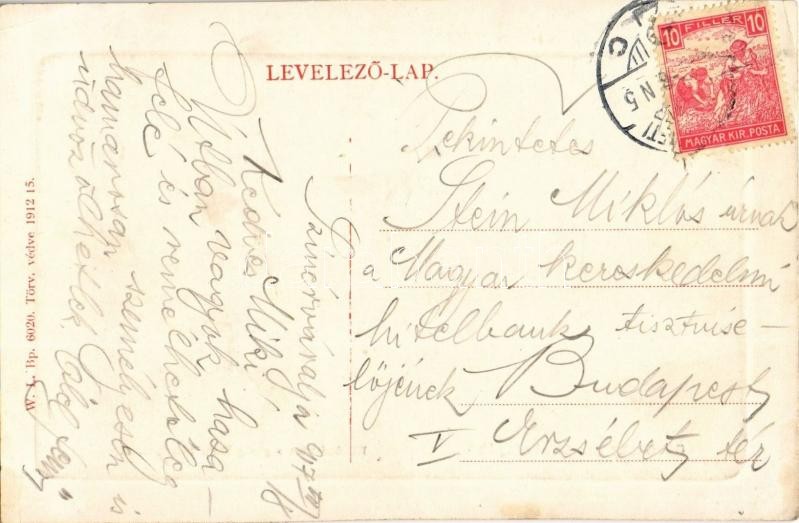 LEVELEZŐ-LAP.
10 FILLER 10
MAGYAR KIR. POSTA
W. L. Bp. 6020. Törv. védve 1912 15.
Szinérváralja 917
Kedves Miki!
Útban vagyok haza-
felé és remélhetőleg
hamarosan személyesen is
üdvözölhetlek.
Tekintetes
Stein Miklós úrnak
a Magyar kereskedelmi
hitelbank tisztvise-
lőjének Budapest
V Erzsébet tér